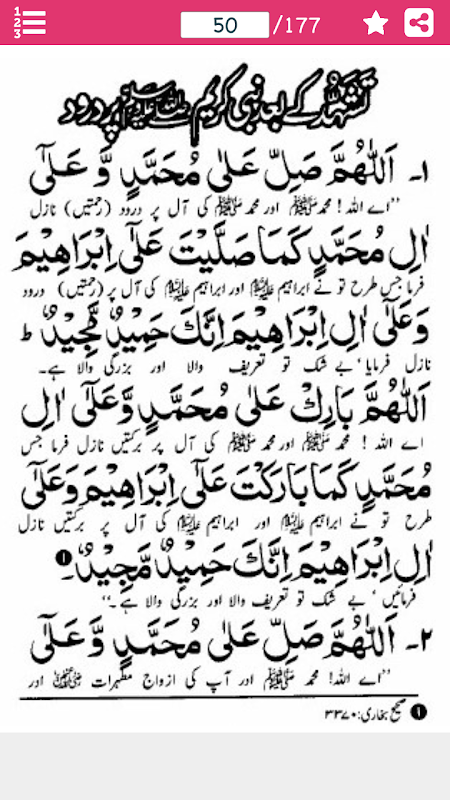 50 /177
تَشَہُّد کے بعد نبی کریم ﷺ پر درود
۱۔ اَللّٰهُمَّ صَلِّ عَلٰى مُحَمَّدٍ وَّ عَلٰٓى
”اے اللہ! محمد ﷺ اور محمد ﷺ کی آل پر درود (رحمتیں) نازل
اٰلِ مُحَمَّدٍ كَمَا صَلَّيْتَ عَلٰٓى اِبْرَاهِيْمَ
فرما جس طرح تو نے ابراہیم علیہ السلام اور ابراہیم علیہ السلام کی آل پر (رحمتیں) درود
وَعَلٰٓى اٰلِ اِبْرَاهِيْمَ اِنَّكَ حَمِيْدٌ مَّجِيْدٌ ط
نازل فرمایا، بے شک تو تعریف والا اور بزرگی والا ہے۔
اَللّٰهُمَّ بَارِكْ عَلٰى مُحَمَّدٍ وَّعَلٰٓى اٰلِ
اے اللہ! محمد ﷺ اور محمد ﷺ کی آل پر برکتیں نازل فرما جس
مُحَمَّدٍ كَمَا بَارَكْتَ عَلٰٓى اِبْرَاهِيْمَ وَعَلٰٓى
طرح تو نے ابراہیم علیہ السلام اور ابراہیم علیہ السلام کی آل پر برکتیں نازل
اٰلِ اِبْرَاهِيْمَ اِنَّكَ حَمِيْدٌ مَّجِيْدٌ۔ ❶
فرمائیں، بے شک تو تعریف والا اور بزرگی والا ہے۔“
۲۔ اَللّٰهُمَّ صَلِّ عَلٰى مُحَمَّدٍ وَّ عَلٰٓى
”اے اللہ! محمد ﷺ اور آپ کی ازواج مطہرات رضی اللہ عنہن اور
❶ صحیح بخاری: ۳۳۷۰